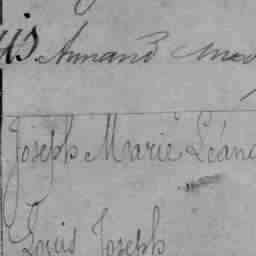 is Armand
Joseph Marie Léand
Louis Joseph